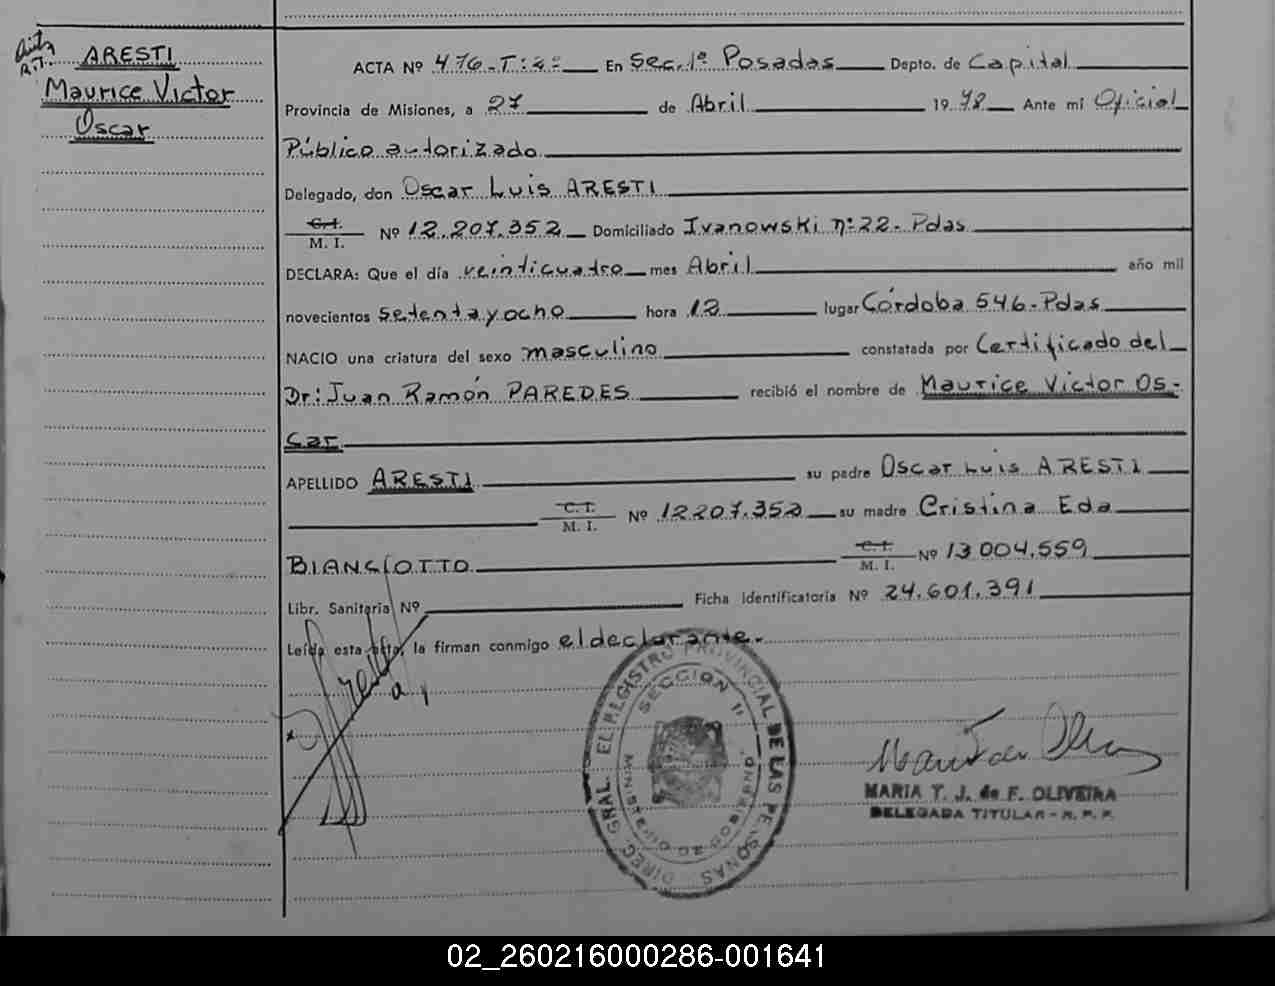 ARESTI
Maurice Victor
Oscar
ACTA Nº 476-T:2º En Sec. 1ª Posadas Depto. de Capital
Provincia de Misiones, a 27 de Abril 1978 Ante mi Oficial
Público autorizado
Delegado, don Oscar Luis ARESTI
C.I.
M. I. Nº 12.207.352 Domiciliado Ivanowski nº:22- Pdas
DECLARA: Que el día veinticuatro mes Abril año mil
novecientos setenta y ocho hora 12 lugar Córdoba 546-Pdas
NACIO una criatura del sexo masculino constatada por Certificado del
Dr: Juan Ramón PAREDES recibió el nombre de Maurice Victor Os-
car
APELLIDO ARESTI su padre Oscar Luis ARESTI
C. I.
M. I. Nº 12207.352 su madre Cristina Eda
BIANCIOTTO C. I.
M. I. Nº 13.004.559
Libr. Sanitaria Nº Ficha Identificatoria Nº 24.601.391
Leída esta acta, la firman conmigo el declarante.
DIREC. GRAL. EL REGISTRO PROVINCIAL DE LAS PERSONAS
SECCION 1ª
MINISTERIO DE GOBIERNO
MARIA T. J. de F. OLIVEIRA
DELEGADA TITULAR - R. P. P.
02_260216000286-001641